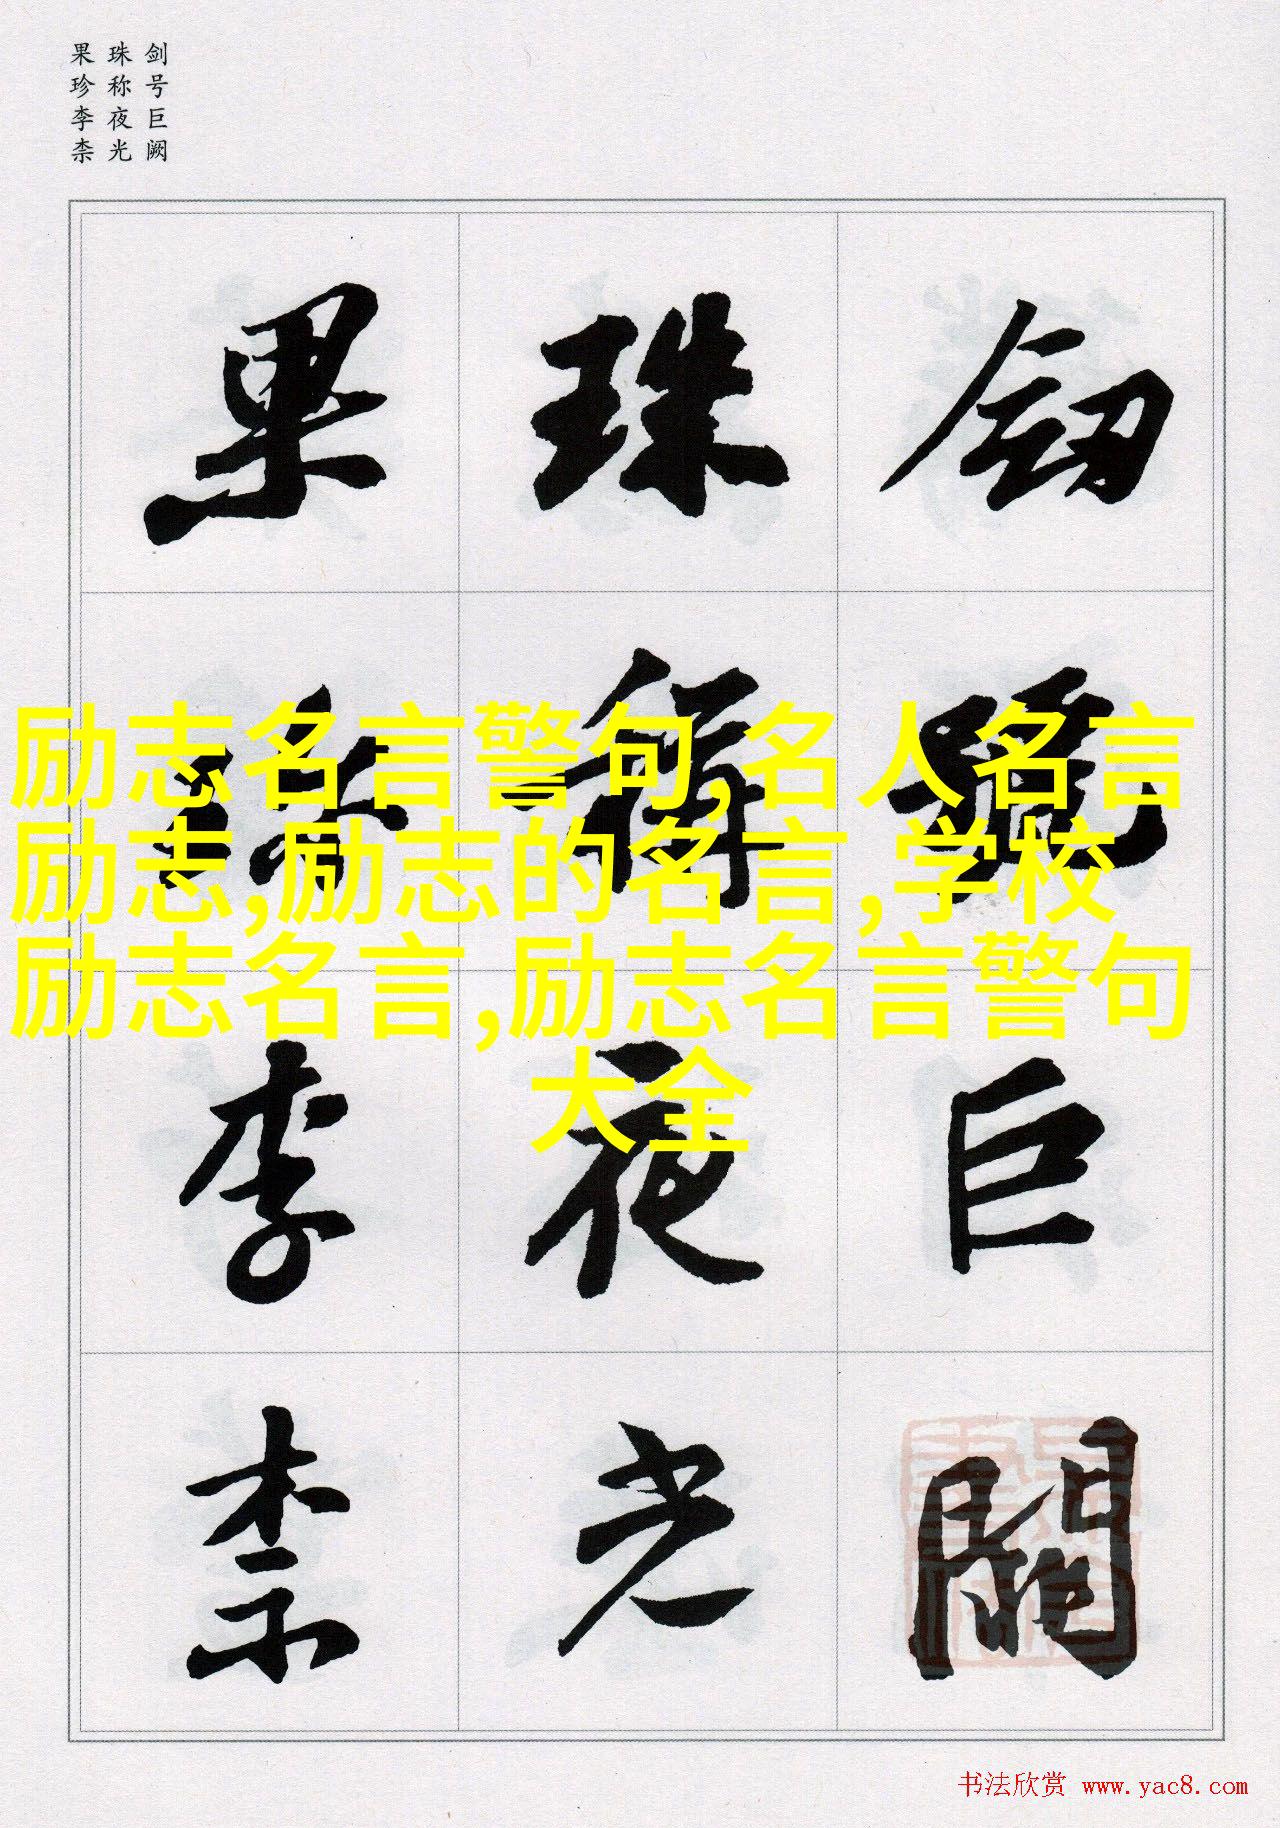 剑号巨阙
珠称夜光
果珍李柰
劒號巨闕
珠稱夜光
果珍李柰
励志名言警句,名人名言
励志,励志的名言,学校
励志名言,励志名言警句
大全
书法欣赏 www.yac8.com